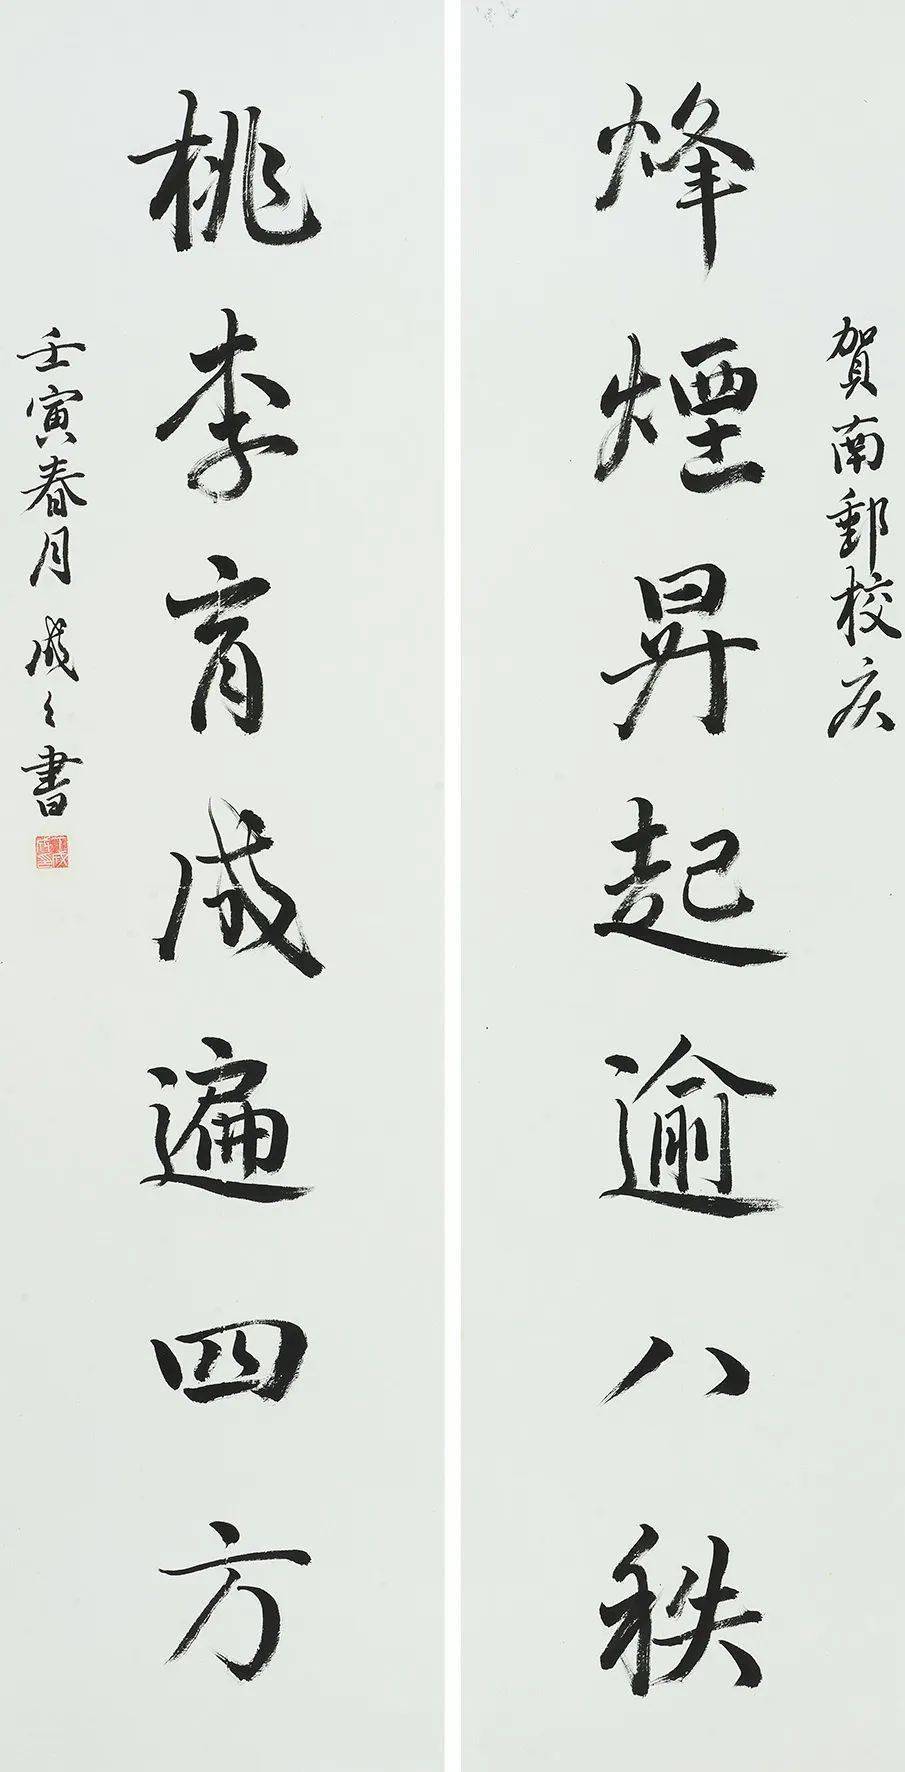 賀南郵校庆
烽煙昇起逾八秩
桃李育成遍四方
壬寅春月成之書